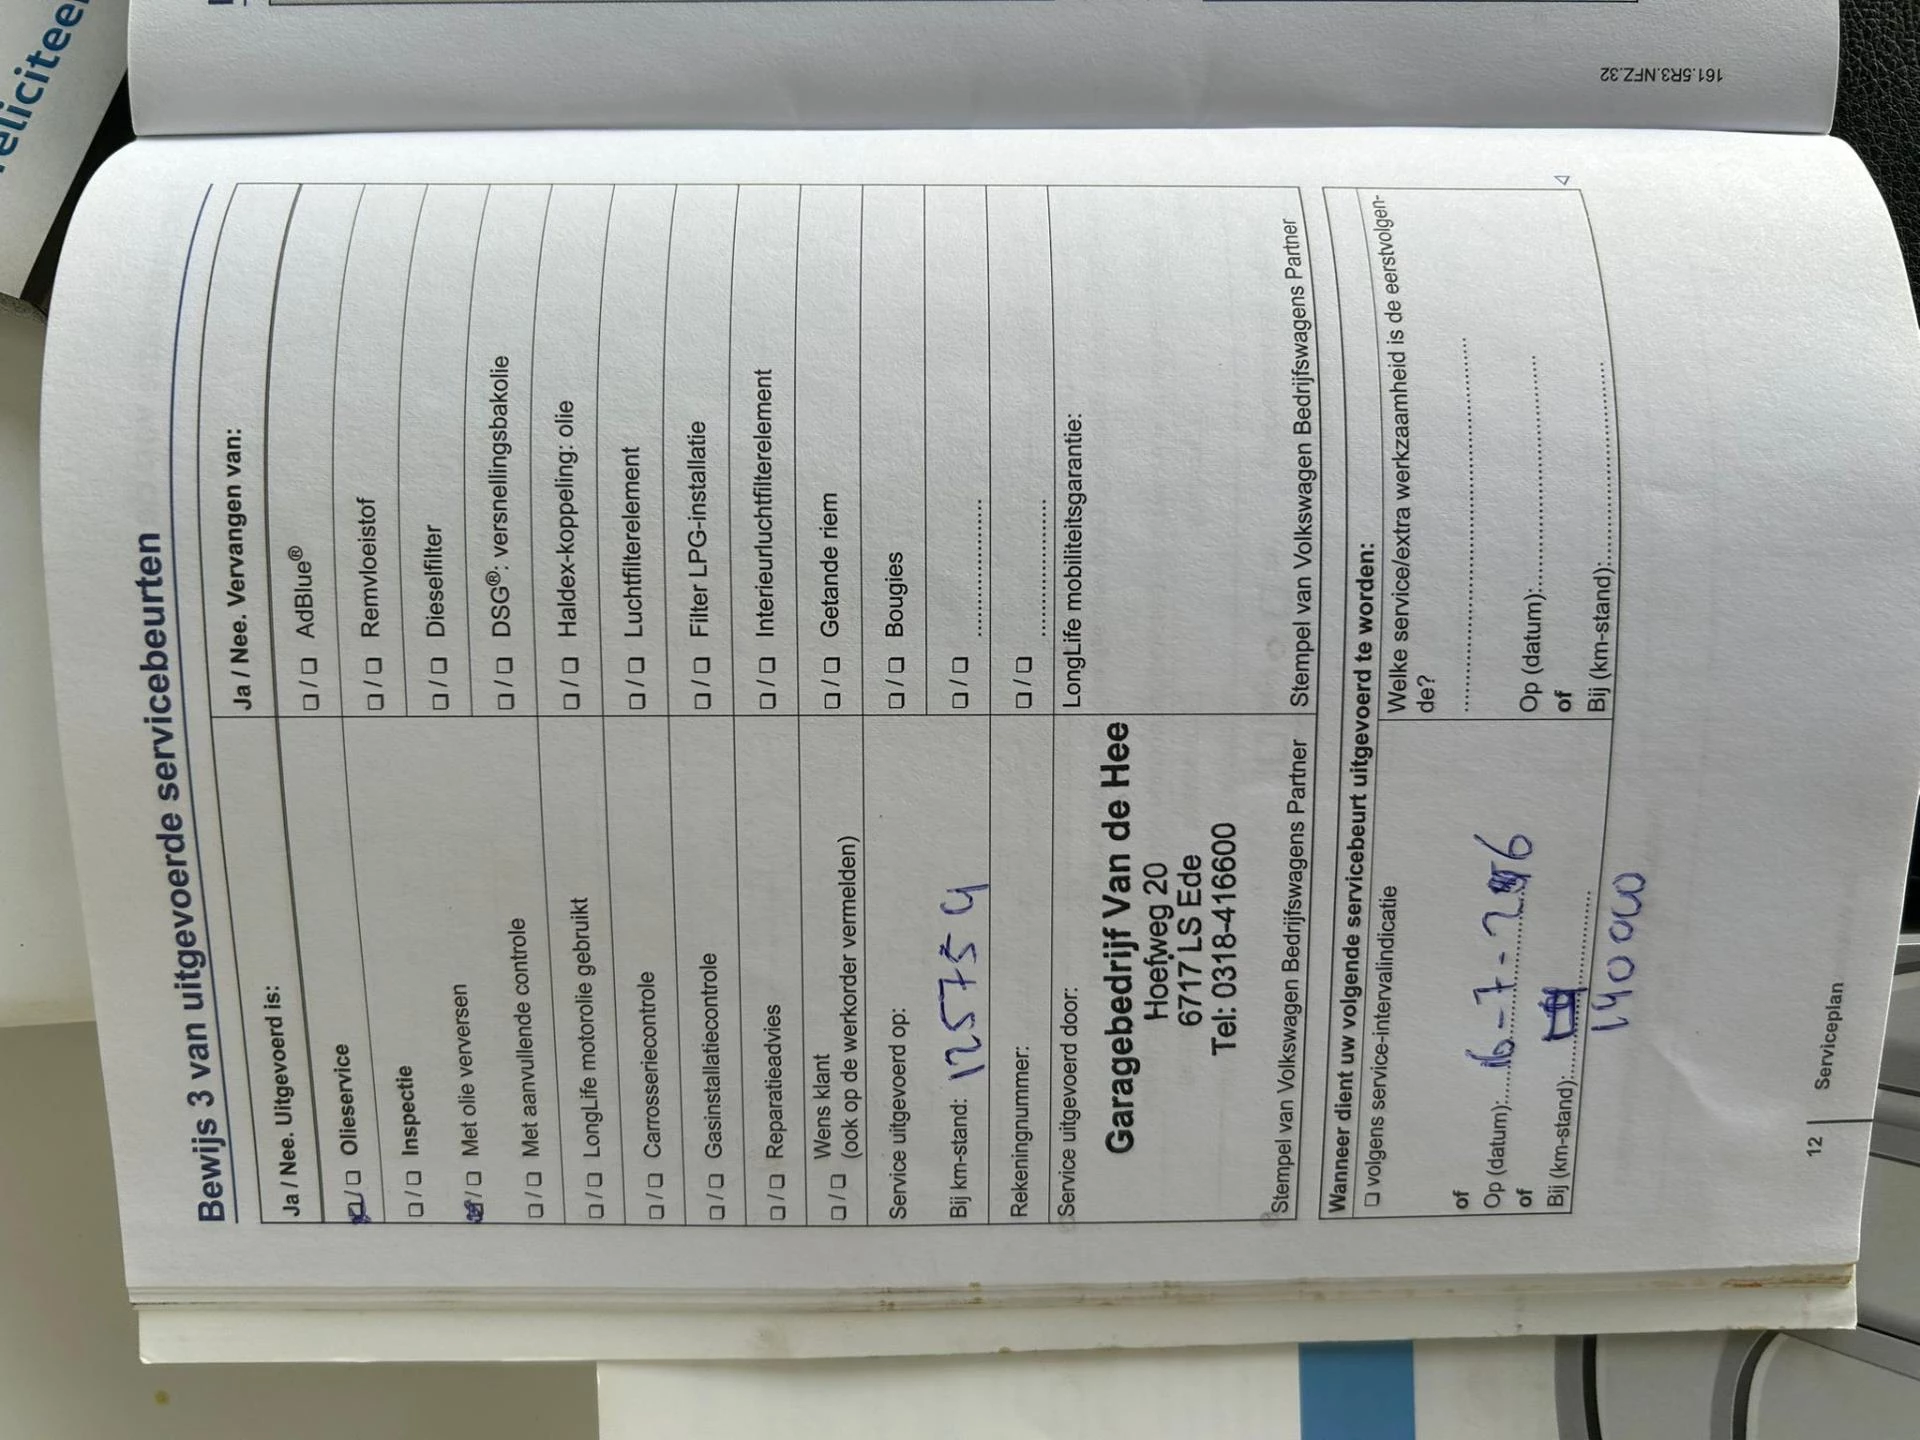 eliciteer
161.5R3.NFZ.32
Bewijs 3 van uitgevoerde servicebeurten
Ja / Nee. Uitgevoerd is:
❑ / ❑ Olieservice
❑ / ❑ Inspectie
❑ / ❑ Met olie verversen
❑ / ❑ Met aanvullende controle
❑ / ❑ LongLife motorolie gebruikt
❑ / ❑ Carrosseriecontrole
❑ / ❑ Gasinstallatiecontrole
❑ / ❑ Reparatieadvies
❑ / ❑ Wens klant
(ook op de werkorder vermelden)
Service uitgevoerd op:
Bij km-stand: 125754
Rekeningnummer:
Service uitgevoerd door:
Garagebedrijf Van de Hee
Hoefweg 20
6717 LS Ede
Tel: 0318-416600
Stempel van Volkswagen Bedrijfswagens Partner
Ja / Nee. Vervangen van:
❑ / ❑ AdBlue®
❑ / ❑ Remvloeistof
❑ / ❑ Dieselfilter
❑ / ❑ DSG®: versnellingsbakolie
❑ / ❑ Haldex-koppeling: olie
❑ / ❑ Luchtfilterelement
❑ / ❑ Filter LPG-installatie
❑ / ❑ Interieurluchtfilterelement
❑ / ❑ Getande riem
❑ / ❑ Bougies
❑ / ❑ ....................
❑ / ❑ ....................
LongLife mobiliteitsgarantie:
Stempel van Volkswagen Bedrijfswagens Partner
Wanneer dient uw volgende servicebeurt uitgevoerd te worden:
❑ volgens service-intervalindicatie
of
Op (datum):
of
Bij (km-stand):
140000
Welke service/extra werkzaamheid is de eerstvolgen-
de?
Op (datum):
of
Bij (km-stand):
12 Serviceplan